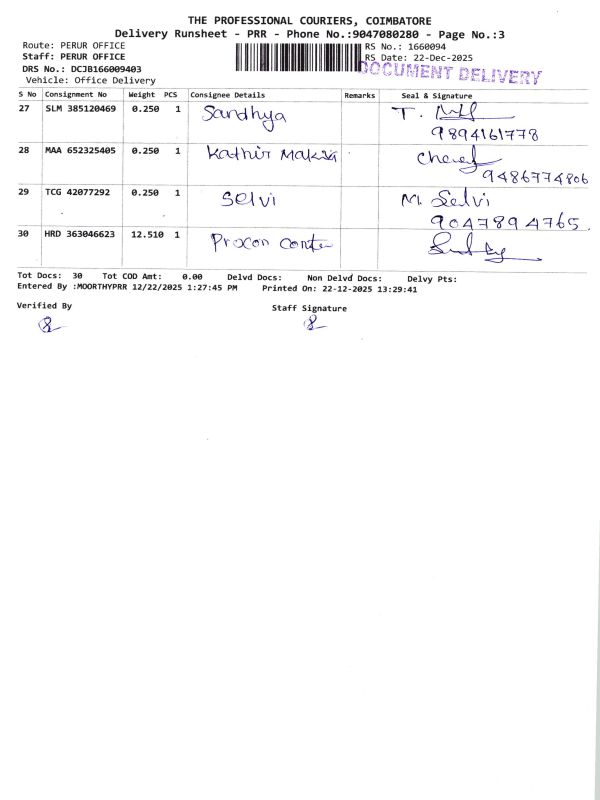 THE PROFESSIONAL COURIERS, COIMBATORE
Delivery Runsheet - PRR - Phone No.:9047080280 - Page No.:3
Route: PERUR OFFICE RS No.: 1660094
Staff: PERUR OFFICE RS Date: 22-Dec-2025
DRS No.: DCJB166009403 DOCUMENT DELIVERY
Vehicle: Office Delivery
S No Consignment No Weight PCS Consignee Details Remarks Seal & Signature
27 SLM 385120469 0.250 1 Sandhya T.
9894161778
28 MAA 652325405 0.250 1 Kathir
9486774806
29 TCG 42077292 0.250 1 Selvi M. Selvi
9047894765
30 HRD 363046623 12.510 1 Procon
Tot Docs: 30 Tot COD Amt: 0.00 Delvd Docs: Non Delvd Docs: Delvy Pts:
Entered By :MOORTHYPRR 12/22/2025 1:27:45 PM Printed On: 22-12-2025 13:29:41
Verified By Staff Signature